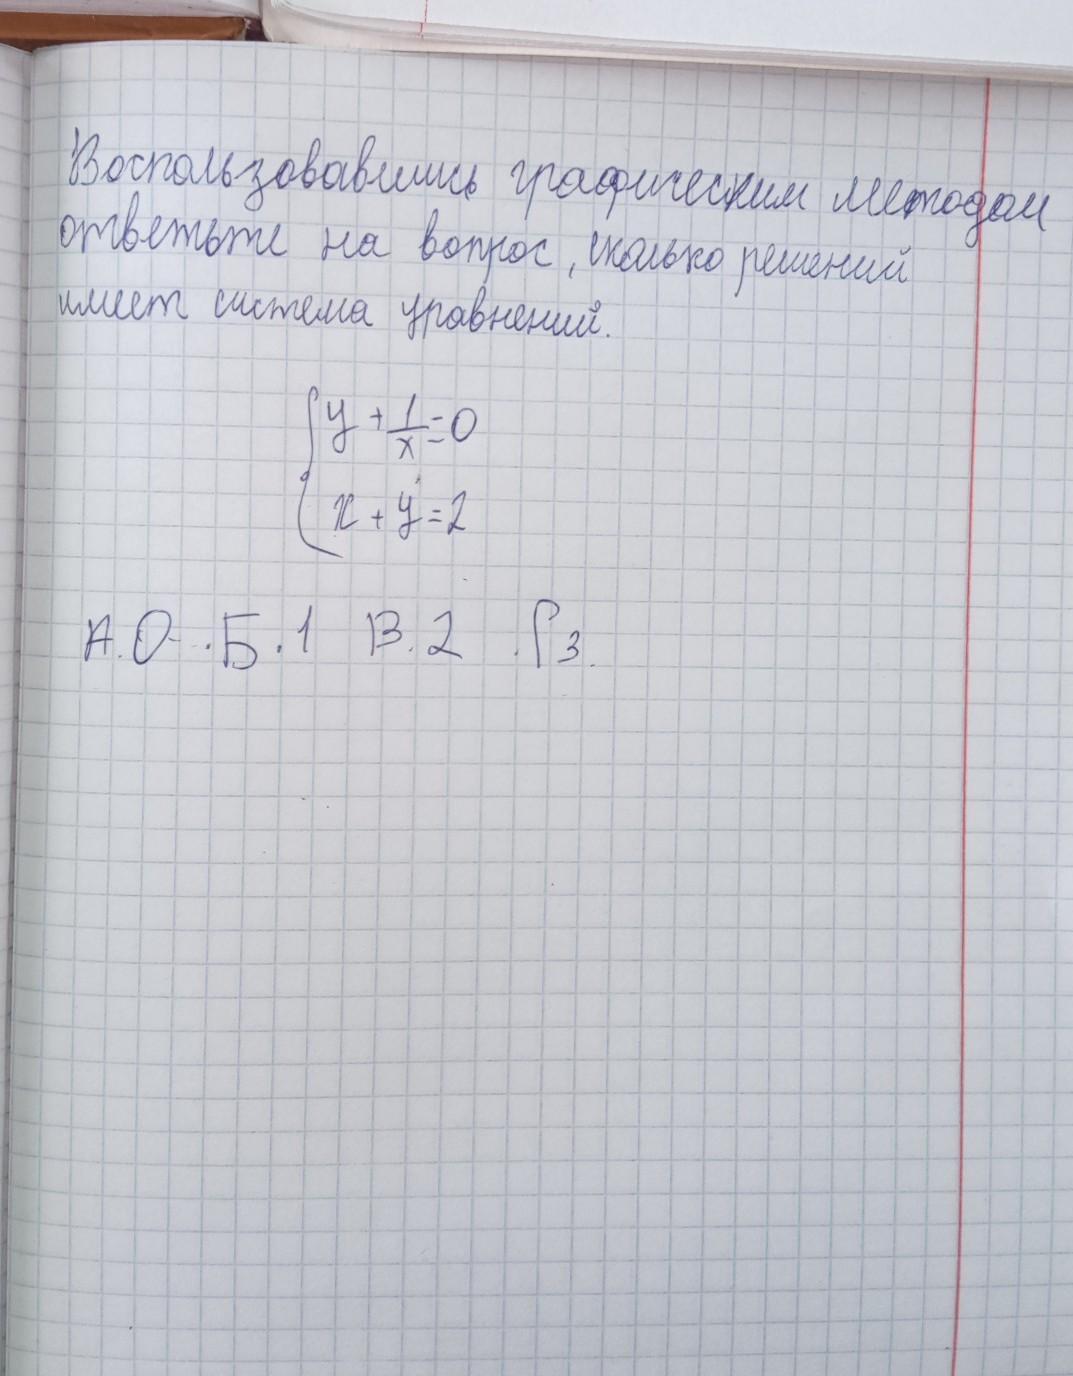 Воспользовавшись графическим методом
ответьте на вопрос, сколько решений
имеет система уравнений.
y + 1/x = 0
x + y = 2
А. 0 . Б. 1 В. 2 . Г 3.